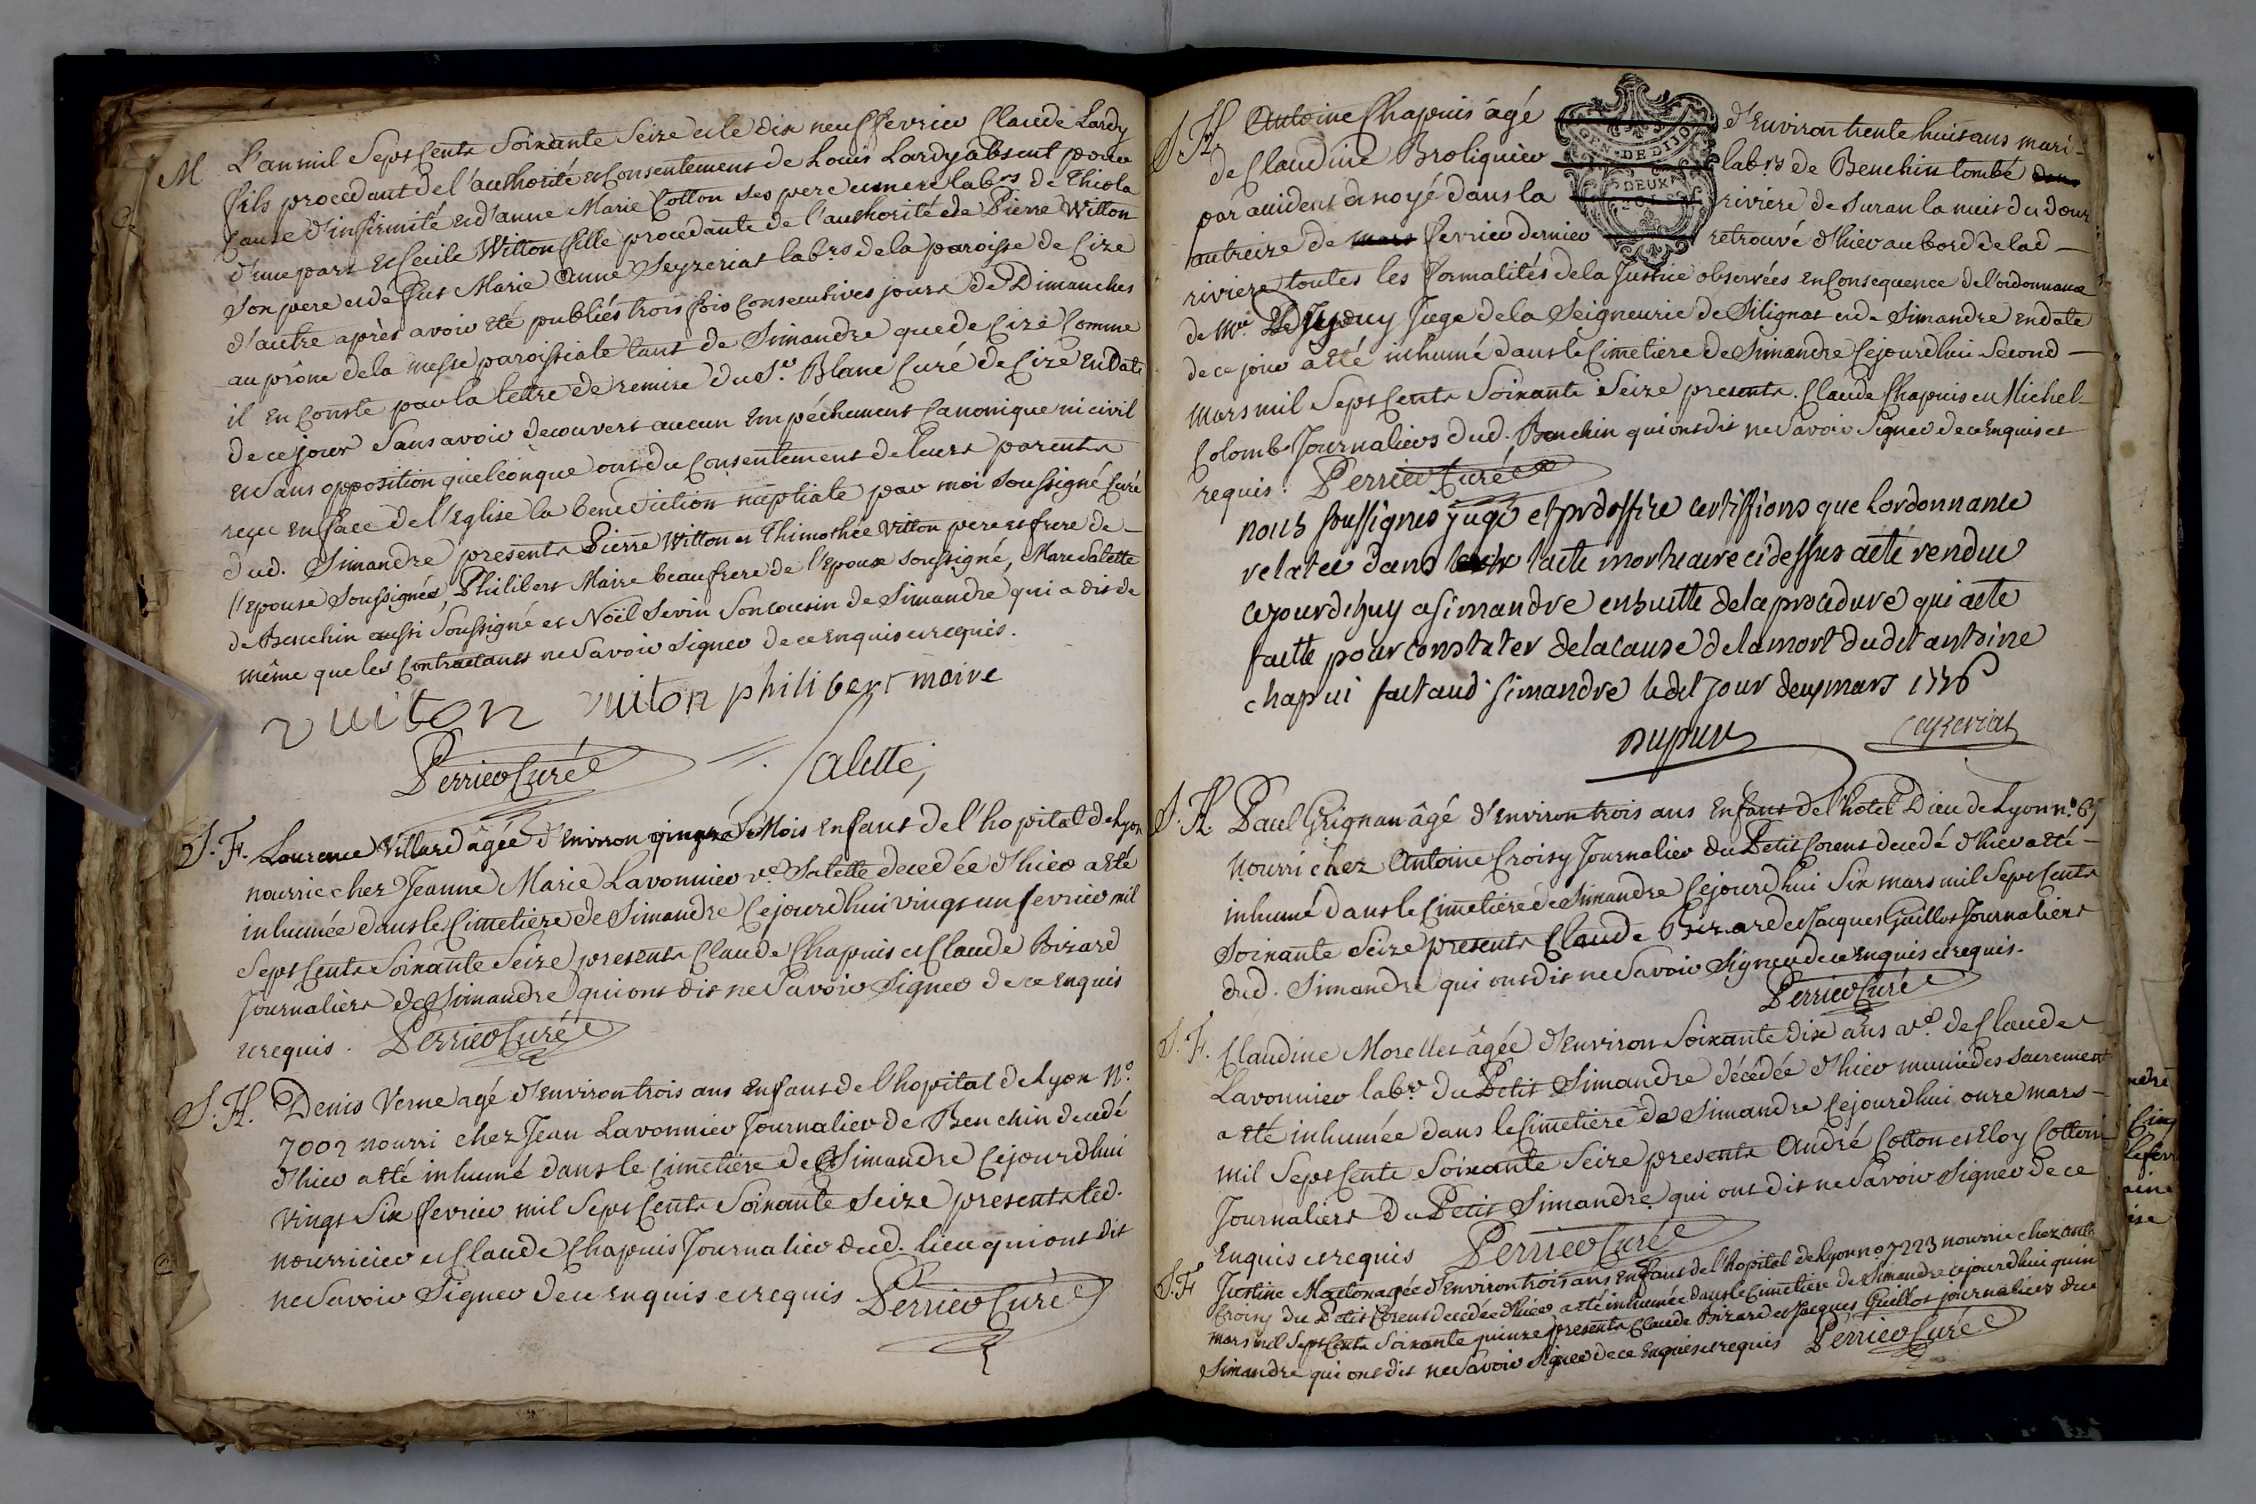 M L'an mil Sept Cents Soixante Seize et le dix neuf fevrier Claude Lardy
fils procedant de l'authorité et Consentement de Louis Lardy absent pour
Cause d'infirmité et d'anne Marie Cotton ses pere et mere labrs de Thiole
d'une part et Cecile Witton fille procedante de l'authorité de Pierre Witton
son pere et de fut Marie Anne Seyzeriat labrs de la paroisse de Cize
d'autre après avoir été publiés trois fois Consecutives jours de Dimanches
au prône de la messe paroissiale tant de Simandre que de Cize Comme
il en Conste par la lettre de remise du Sr. Blanc Curé de Cize en Date
de ce jour Sans avoir decouvert aucun Empéchement Canonique ni civil
et Sans opposition quelconque ont du Consentement de leurs parents
reçu en face de l'Eglise la benediction nuptiale par moi Soussigné Curé
dud. Simandre presents Pierre Witton et Thimothée Vitton pere et frere de
l'Epouse Soussignés, Philibert Maire beaufrere de l'Epoux soussigné, Marc Salette
de Benchin aussi Soussigné et Noël Sevin Son Cousin de Simandré qui a dit de
même que les Contractants ne Savoir Signer de ce Enquis et requis.
vuiton vuiton philibert maire
Perrier Curé Salette
S. F. Laurence Villard âgée d'Environ quinze Mois enfant de l'hopital de Lyon
nourrie chez Jeanne Marie Lavonnier ve. Salette decedée d'hier a été
inhumée dans le Cimetiere de Simandre Cejourdhui vingt un fevrier mil
Sept Cents Soixante Seize presents Claude Chapuis et Claude Bizard
Journaliers de Simandre qui ont dit ne Savoir Signer de ce Enquis
et requis. Perrier Curé
S. H. Denis Verne agé d'Environ trois ans Enfant de l'hopital de Lyon No.
7002 nourri chez Jean Lavonnier Journalier de Benchin decedé
d'hier a été inhumé dans le Cimetiere de Simandre Cejourdhui
vingt Six fevrier mil Sept Cents Soixante Seize presents led.
nourricier et Claude Chapuis Journalier dud. lieu qui ont dit
ne Savoir Signer de ce Enquis et requis Perrier Curé
S. H. Antoine Chapuis âgé d'Environ trente huit ans mari
GEN. DE DIJON
DEUX SOLS
de Claudine Broliquier labrs de Benchin tombé dans
par accident et noyé dans la riviere de Suran la nuit du douze
au treize de mars fevrier dernier retrouvé d'hier au bord de lad
riviere toutes les formalités de la Justice observées en Consequence de l'ordonnance
de Mre Juge de la Seigneurie de Silignat et de Simandre en date
de ce jour a été inhumé dans le Cimetiere de Simandre Cejourdhui Second
mars mil Sept Cents Soixante Seize presents Claude Chapuis et Michel
Colomb Journaliers dud. Benchin qui ont dit ne Savoir Signer de ce Enquis et
requis. Perrier Curé
nous soussignes juge et certiffions que Lordonnance
relatee dans lacte mortuaire cidessus a eté rendue
cejourdhuy a simandre ensuitte de la procedure qui a eté
faitte pour constater de la cause de la mort dudit antoine
chapui fait aud. simandre ledit jour deux mars 1776
Dupuy
S. H. Paul Grignan âgé d'environ trois ans Enfant de l'hotel Dieu de Lyon no. 65
nourri chez Antoine Croisy Journalier du Petit Corent decedé d'hier a été
inhumé dans le Cimetiere de Simandre Cejourdhui Six mars mil Sept Cents
Soixante Seize presents Claude Bizard et Jacques Guillot Journaliers
dud. Simandre qui ont dit ne Savoir Signer de ce Enquis et requis.
Perrier Curé
S. F. Claudine Morellet âgée d'Environ Soixante dix ans ve. de Claude
Lavonnier labr. du Petit Simandre décédée d'hier munie des sacrements
a été inhumée dans le Cimetiere de Simandre Cejourdhui onze mars
mil Sept Cents Soixante Seize presents André Cotton et Eloy Cotton
Journaliers du Petit Simandre qui ont dit ne Savoir Signer de ce
Enquis et requis Perrier Curé
S. F. Justine agée d'Environ trois ans Enfant de l'hopital de Lyon no 7223 nourrie chez
Croisy du Petit Corent decedée d'hier a été inhumée dans le Cimetiere de Simandre cejourdhui
mars mil Sept Cents Soixante quinze presents Claude Bizard et Jacques Guillot journaliers du
Simandre qui ont dit ne Savoir Signer de ce Enquis et requis Perrier Curé